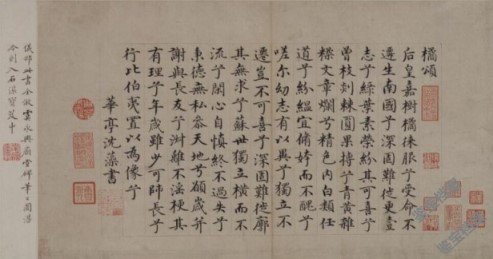 橘頌
后皇嘉樹橘徠服兮受命不
遷生南國兮深固難徙更壹
志兮綠葉素榮紛其可喜兮
曾枝剡棘圓果摶兮青黃雜
糅文章爛兮精色内白類任
道兮紛緼宜脩姱而不醜兮
嗟尔幼志有以異兮獨立不
遷豈不可喜兮深固難徙廓
其無求兮蘇世獨立橫而不
流兮閉心自慎終不過失兮
秉德無私參天地兮願歲并
謝與長友兮淑離不淫梗其
有理兮年歲雖少可師長兮
行比伯夷置以為像兮
華亭沈藻書
此書全倣永興廟堂碑筆